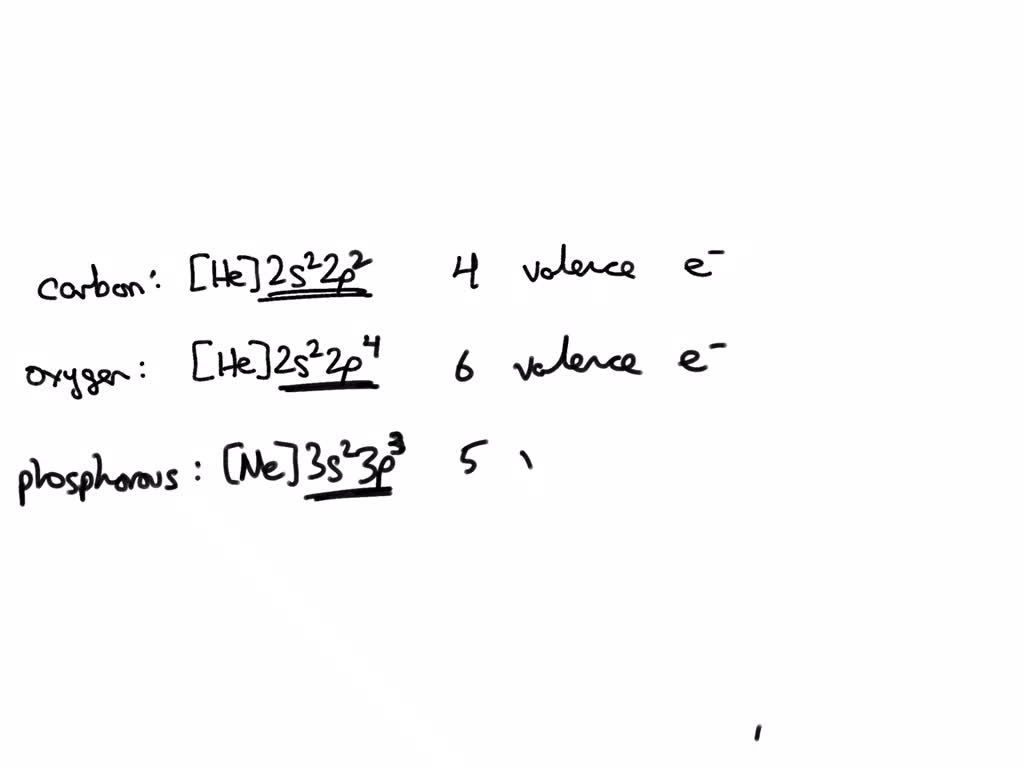 carbon: [He]2s²2p² 4 valence e⁻
oxygen: [He]2s²2p⁴ 6 valence e⁻
phosphorous: [Ne]3s²3p³ 5